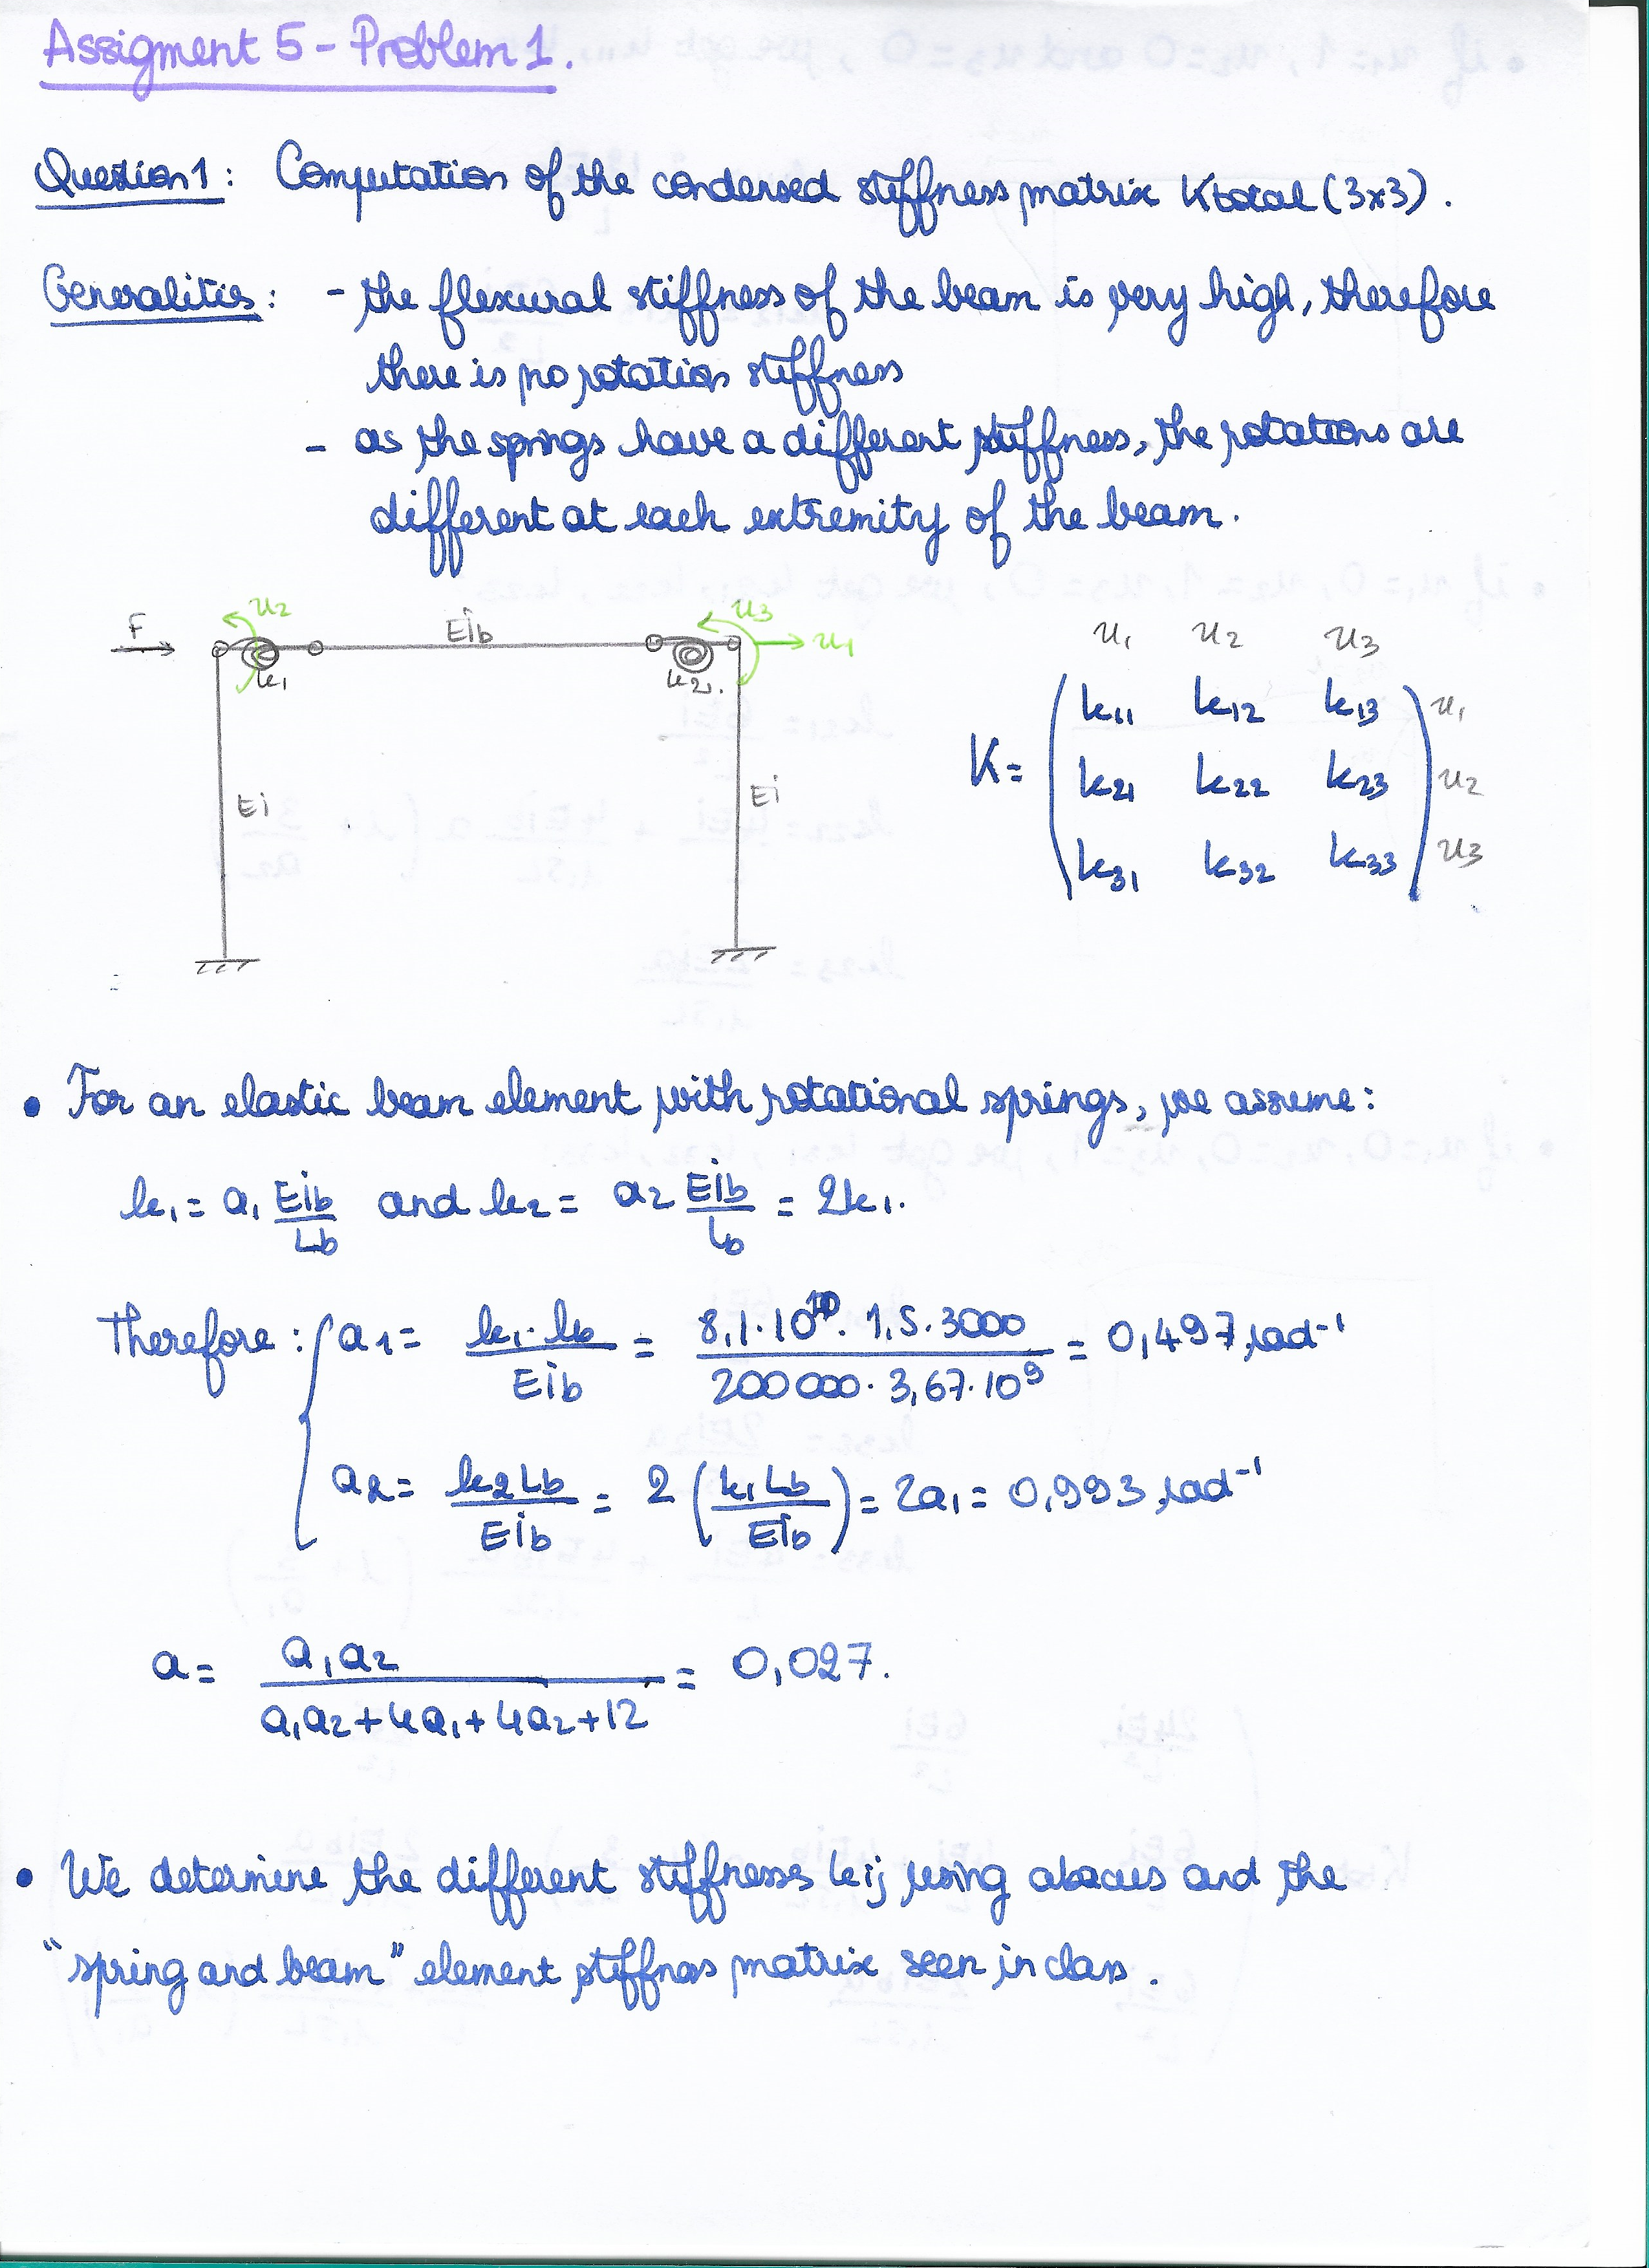 Assigment 5 - Problem 1.
Question 1: Computation of the condensed stiffness matrix Ktotal (3x3).
Generalities: - the flexural stiffness of the beam is very high, therefore
there is no rotation stiffness
- as the springs have a different stiffness, the rotations are
different at each extremity of the beam.
F u2 EIb u3 u1
k1 k2
EI EI
u1 u2 u3
K = ( k11 k12 k13 ) u1
( k21 k22 k23 ) u2
( k31 k32 k33 ) u3
• For an elastic beam element with rotational springs, we assume:
k1 = a1 EIb/Lb and k2 = a2 EIb/Lb = 2k1.
Therefore: { a1 = k1·Lb/EIb = 8,1·10^10·1,5·3000/200000·3,67·10^9 = 0,497 rad^-1
a2 = k2Lb/EIb = 2 (k1Lb/EIb) = 2a1 = 0,993 rad^-1
a = a1a2/a1a2+4a1+4a2+12 = 0,027.
• We determine the different stiffnesses kij using abacus and the
"spring and beam" element stiffness matrix seen in class.